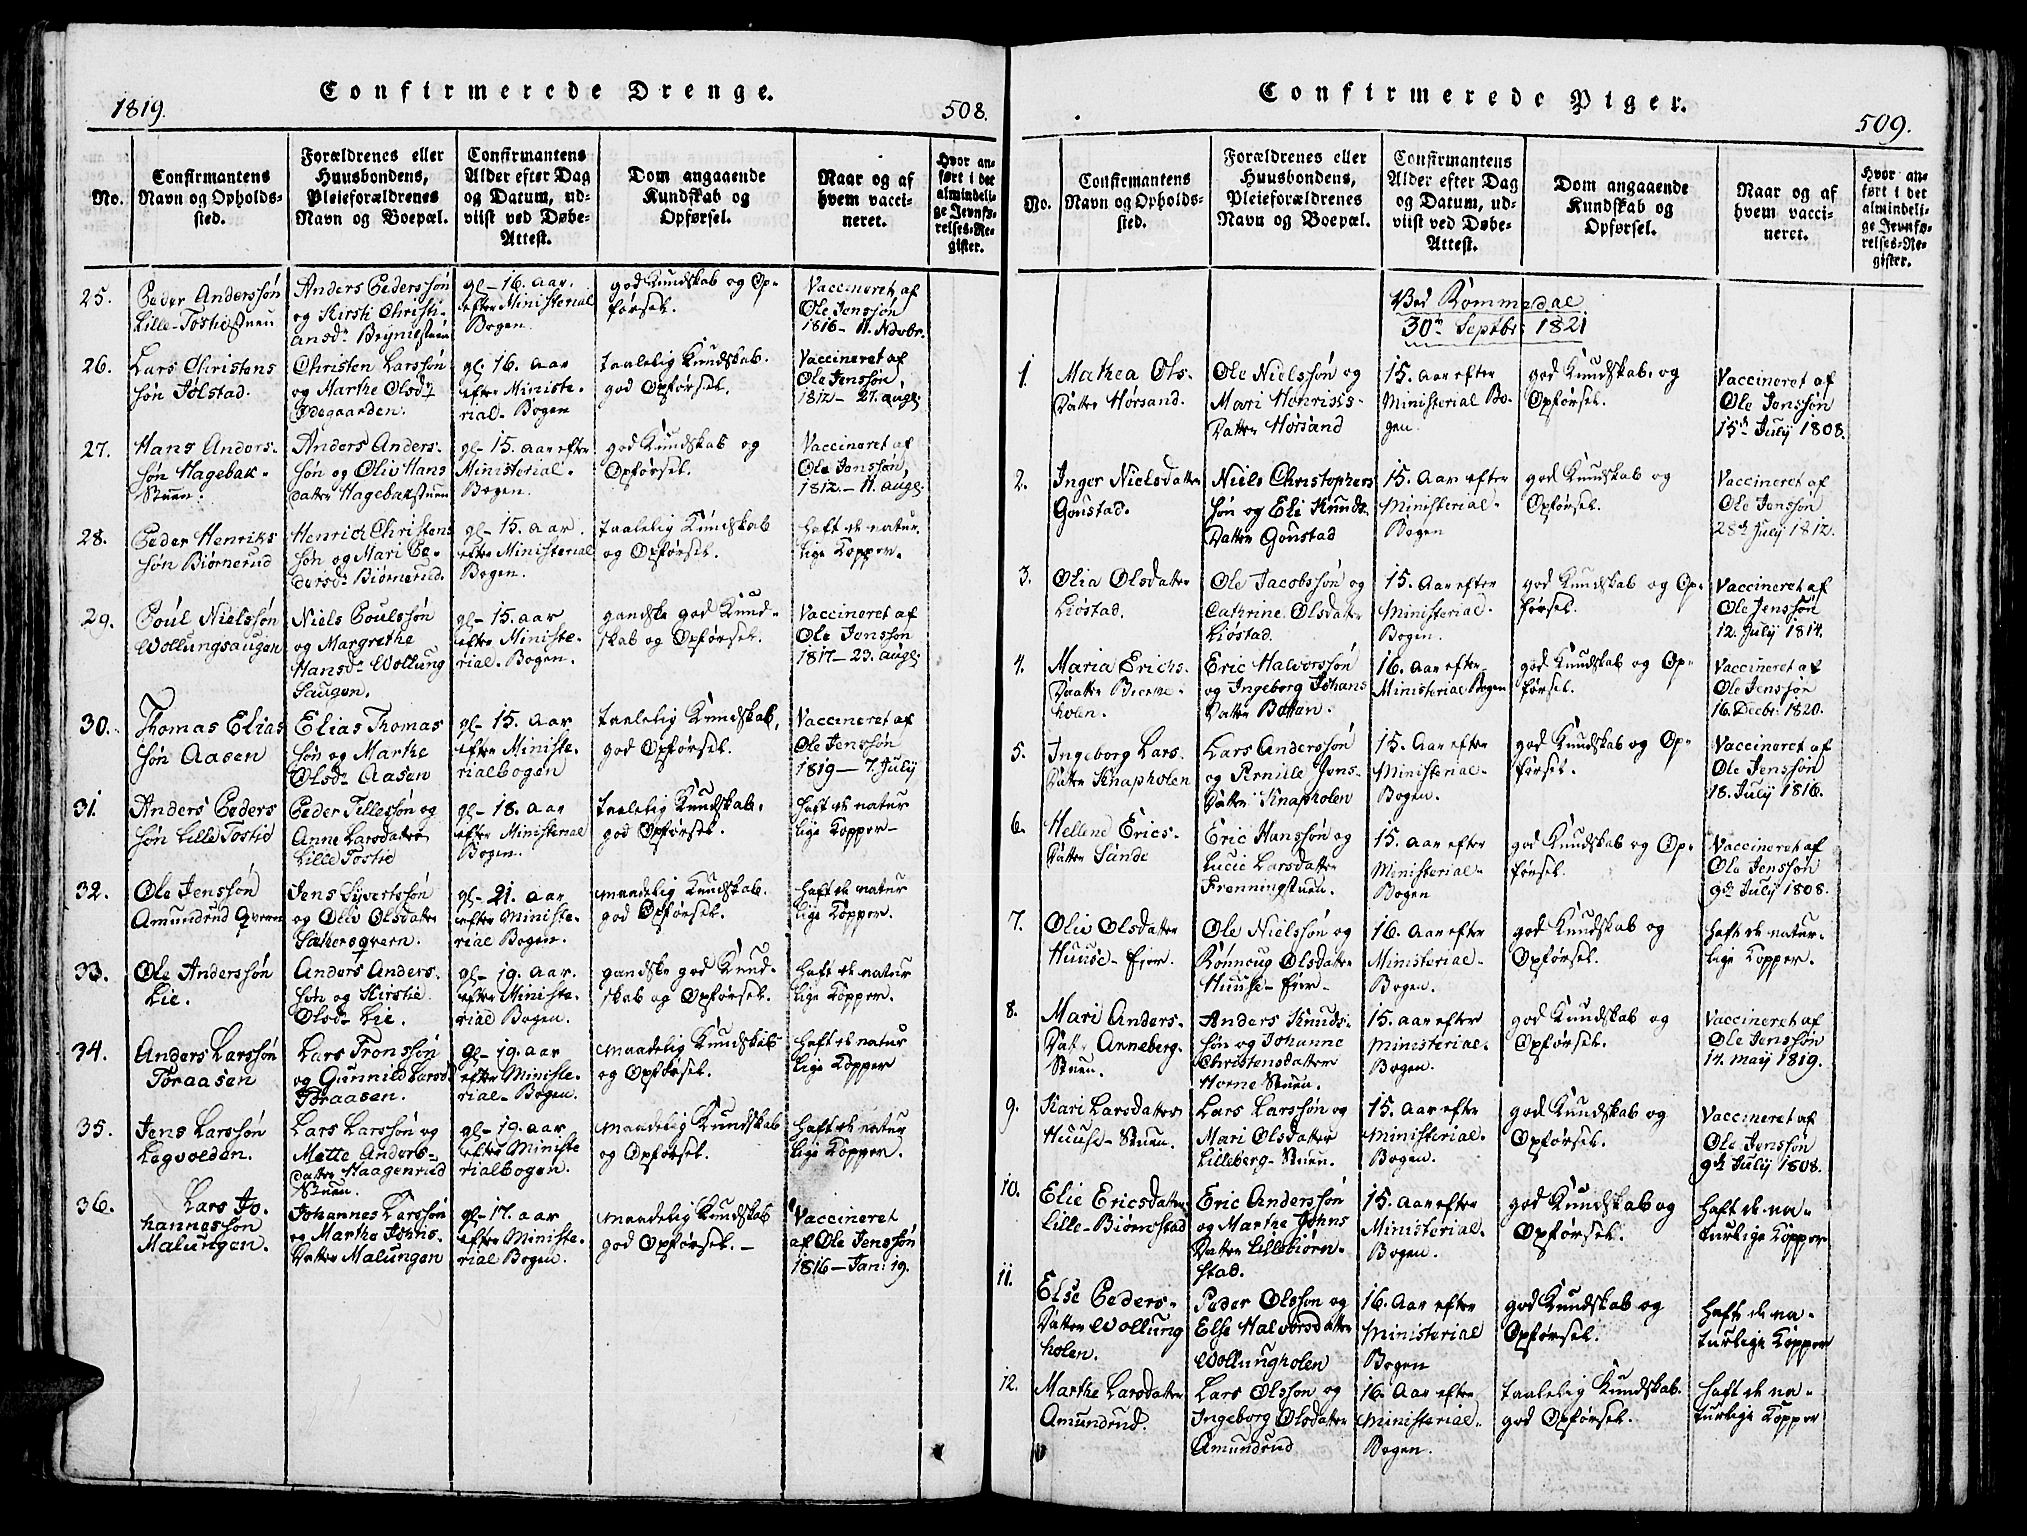 1819.
Confirmerede Drenge.
508.
No.
Confirmantens
Navn og Opholds-
sted.
Forældrenes eller
Huusbondens,
Pleieforældrenes
Navn og Boepæl.
Confirmantens
Alder efter Dag
og Datum, ud-
viist ved Døbe-
Attest.
Dom angaaende
Kundskab og
Opførsel.
Naar og af
hvem vacci-
neret.
Hvor an-
ført i det
almindeli-
ge Jevnfø-
relses-Re-
gister.
25.
Peder Anderssøn
Lille-Tostidstuen
Anders Pederssøn
og Kirsti Christi-
ansdr
gl- 16. aar.
efter Ministerial
Bogen.
god Kundskab og Op-
førsel.
Vaccineret af
Ole Jenssøn
1816- 11. Novbr.
26.
Lars Christens
søn Jølstad.
Christen Larssøn
og Marthe Olsdr
Ødegaarden.
gl. 16. aar
efter Ministe-
rial-Bogen
taalelig Kundskab.
god Opførsel.
Vaccineret af
Ole Jenssøn,
1812- 27. augl;
27.
Hans Anders-
søn Hagebak-
Stuen.
Anders Anders-
søn og Oliv Hans
datter Hagebakstuen
gl- 15. aar efter
Ministerial-
Bogen.
god Kundskab og
Opførsel.
Vaccineret af
Ole Jenssøn,
1812- 11. augl;
28.
Peder Henriks
søn Biørnerud
Henrich Christens
søn og Mari Pe-
dersdr Biørnerud.
gl- 15. aar.
efter Ministerial
Bogen.
taalelig Kundskab
og Opførsel.
haft de natur-
lige Kopper.
29.
Poul Nielssøn
Wollungsaugen
Niels Poulssøn
og Margrethe
Hansdr Wollung
Saugen.
gl- 15. aar
efter Ministe-
rial-Bogen.
gandske god Kund-
skab og Opførsel.
Vaccineret af
Ole Jenssøn
1817- 23. augl;
30.
Thomas Elias
søn Aasen
Elias Thomas
søn og Marthe
Olsdr Aasen
gl- 15. aar
efter Ministe-
rialbogen
taalelig Kundskab,
god Opførsel.
Vaccineret af
Ole Jenssøn
1819- 7. July
31.
Anders Peders
søn Lille Tostid
Peder Tillessøn og
Anne Larsdatter
Lille Tostid
gl- 18. aar
efter Ministerial
Bogen.
taalelig Kundskab.
god Opførsel.
haft de natur
lige Kopper-
32.
Ole Jenssøn
Amundrud Qvern
Jens Syvertssøn
og Oliv Olsdatter
Sætersqvern.
gl- 21. aar
efter Ministe-
rial Bogen.
maadelig Kundskab.
god Opførsel.
haft de natur
lige Kopper.
33.
Ole Anderssøn
Lie.
Anders Anders-
søn og Kirstie
Olsdr Lie.
gl- 19. aar.
efter Ministe-
rial Bogen.
gandske god Kund-
skab og Opførsel.
haft de natur
lige Kopper.
34.
Anders Larssøn
Toraasen
Lars Tronssøn
og Gunnild Larsd
Toraasen.
gl- 19. aar
efter Ministe-
rial-Bogen.
maadelig Kundskab
og Opførsel.
haft de natur
lige Kopper
35.
Jens Larssøn
Lægvolden.
Lars Larssøn og
Mette Anders-
datter Haagenrud
Stuen.
gl- 19. aar
efter Ministe
rialbogen.
maadelig Kundskab
og Opførsel.
haft de natur
lige Kopper.
36.
Lars Jo-
hannessøn
Malungen.
Johannes Larssøn
og Marthe Johns-
datter Malungen
gl- 17. aar
efter Ministe-
rial Bogen.
maadelig Kundskab
god Opførsel. -
Vaccineret
af Ole Jenssøn
1816- Jan: 19.
Confirmerede Piger.
509.
No.
Confirmantens
Navn og Opholds-
sted.
Forældrenes eller
Huusbondens,
Pleieforældrenes
Navn og Boepæl.
Confirmantens
Alder efter Dag
og Datum, ud-
viist ved Døbe-
Attest.
Dom angaaende
Kundskab og
Opførsel.
Naar og af
hvem vacci-
neret.
Hvor an-
ført i det
almindeli-
ge Jevnfø-
relses-Re-
gister.
Ved Rommedal
30te Septbr: 1821
1.
Mathea Ols-
Datter Horsand.
Ole Nielssøn og
Mari Henriks-
Datter Horsand
15. Aar efter
Ministerial Bo-
gen.
god Kundskab. og
Opførsel.
Vaccineret af
Ole Jenssøn
15de July 1808.
2.
Inger Nielsdatter
Gonstad.
Niels Christophers
søn og Eli Knuds
Datter Gonstad
15. Aar efter
Ministerial-
Bogen
god Kundskab og
Opførsel.
Vaccineret af
Ole Jenssøn
28de July 1812.
3.
Olia Olsdatter
Liøstad.
Ole Jacobssøn og
Cathrine Olsdatter
Liøstad.
15. Aar efter
Ministerial-
Bogen.
god Kundskab og Op-
førsel.
Vaccineret af
Ole Jenssøn
12. July 1814.
4.
Maria Erichs-
Datter
holen.
Eric Halvorssøn
og Ingeborg Johans
Datter Betten.
16. Aar efter
Ministerial Bogen
god Kundskab og Op-
førsel.
Vaccineret af
Ole Jenssøn
16. Decbr: 1820.
5.
Ingeborg Lars-
Datter Knapholen
Lars Anderssøn
og Pernille Jens-
Datter Knapholen
15. Aar efter
Ministerial-
Bogen.
god Kundskab og Op-
førsel.
Vaccineret af
Ole Jenssøn
18. July 1816.
6.
Hellene Erics-
Datter Sande
Eric Hanssøn og
Lucie Larsdatter
Frenningstuen.
15. Aar efter
Ministerial-
Bogen
god Kundskab og Op-
førsel.
Vaccineret af
Ole Jenssøn
9de July 1808.
7.
Oliv Olsdatter
Huuse-Eier.
Ole Nielssøn og
Ronnoug Olsdatter
Huuse-Eier-
16. Aar efter
Ministerial-
Bogen.
god Kundskab og
Opførsel.
haft de natur-
lige Kopper.
8.
Mari Anders-
Datr Anneberg-
Stuen.
Anders Knuds-
søn og Johanne
Christensdatter
Horne Stuen.
15. aar efter
Ministerial-
Bogen.
god Kundskab og
Opførsel.
Vaccineret af
Ole Jenssøn
14. maij 1819.
9.
Kari Larsdatter
Huuse-Stuen.
Lars Larssøn og
Mari Olsdatter
Lilleberg-Stuen.
15. Aar efter
Ministerial-
Bogen.
god Kundskab og
Opførsel.
Vaccineret af
Ole Jenssøn
9de July 1808.
10.
Elie Ericsdatter
Lille-Biørnstad
Eric Anderssøn
og Marthe Johns
Datter Lillebiørn-
stad.
15. Aar efter
Ministerial-
Bogen.
god Kundskab og
Opførsel.
haft de na-
turlige Kopper
11.
Else Peders-
Datter Wollung
holen.
Peder Olssøn og
Else Halvorsdatter
Wollungholen
16. Aar efter
Ministerial
Bogen
god Kundskab og
Opførsel.
haft de na-
turlige Kopper
12.
Marthe Larsdatter
Amundrud.
Lars Olssøn og
Ingeborg Olsdatter
Amundrud
16. Aar efter
Ministerial-
Bogen.
taalelig Kundskab.
god Opførsel.
haft de na-
turlige Kopper